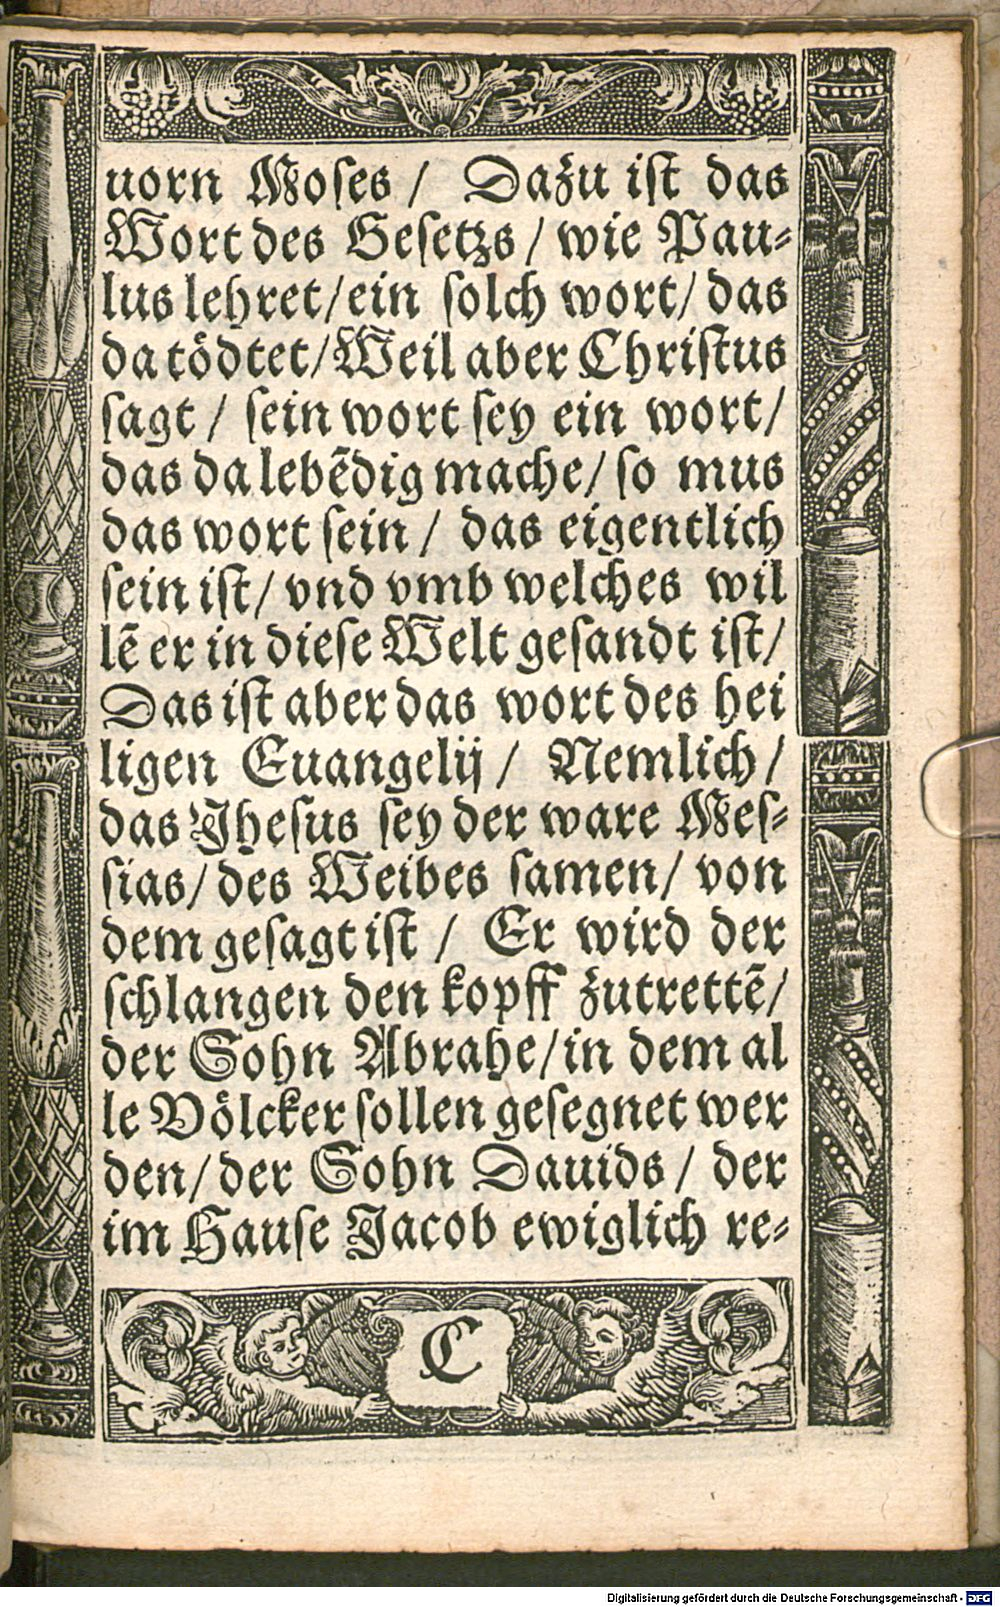 uorn Moses / Dazu ist das
Wort des Gesetzs / wie Pau-
lus lehret / ein solch wort / das
da tödtet / Weil aber Christus
sagt / sein wort sey ein wort /
das da lebẽdig mache / so mus
das wort sein / das eigentlich
sein ist / vnd vmb welches wil
lẽ er in diese Welt gesandt ist /
Das ist aber das wort des hei
ligen Euangelij / Nemlich /
das Jhesus sey der ware Mes-
sias / des Weibes samen / von
dem gesagt ist / Er wird der
schlangen den kopff zutrettẽ /
der Sohn Abrahe / in dem al
le Völcker sollen gesegnet wer
den / der Sohn Dauids / der
im Hause Jacob ewiglich re-
C
Digitalisierung gefördert durch die Deutsche Forschungsgemeinschaft - DFG